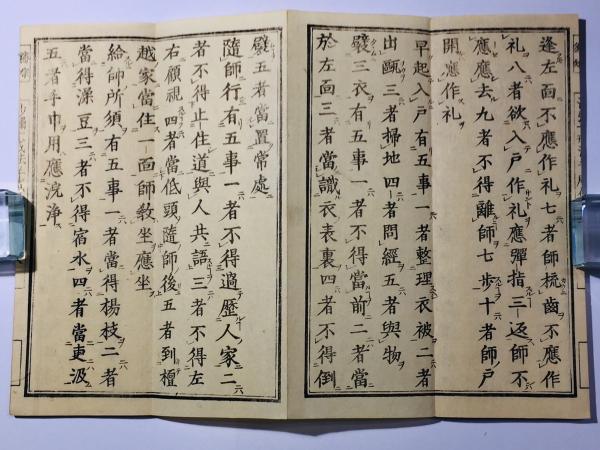 逢左面不應作礼七者師梳齒不應作
礼八者欲入戸作礼應彈指三返師不
應應去九者不得離師七歩十者師戸
開應作礼
早起入戸有五事一者整理衣被二者
出𤭯三者掃地四者問經五者與物
襞三衣有五事一者不得當前二者當
於左面三者當識衣表裏四者不得倒
襞五者當置常處
隨師行有五事一者不得過歷人家二
者不得止住道與人共語三者不得左
右顧視四者當低頭隨師後五者到檀
越家當住一面師教坐應坐
給師所須有五事一者當得楊枝二者
當得澡豆三者不得宿水四者當更汲
五者手巾用應浣浄